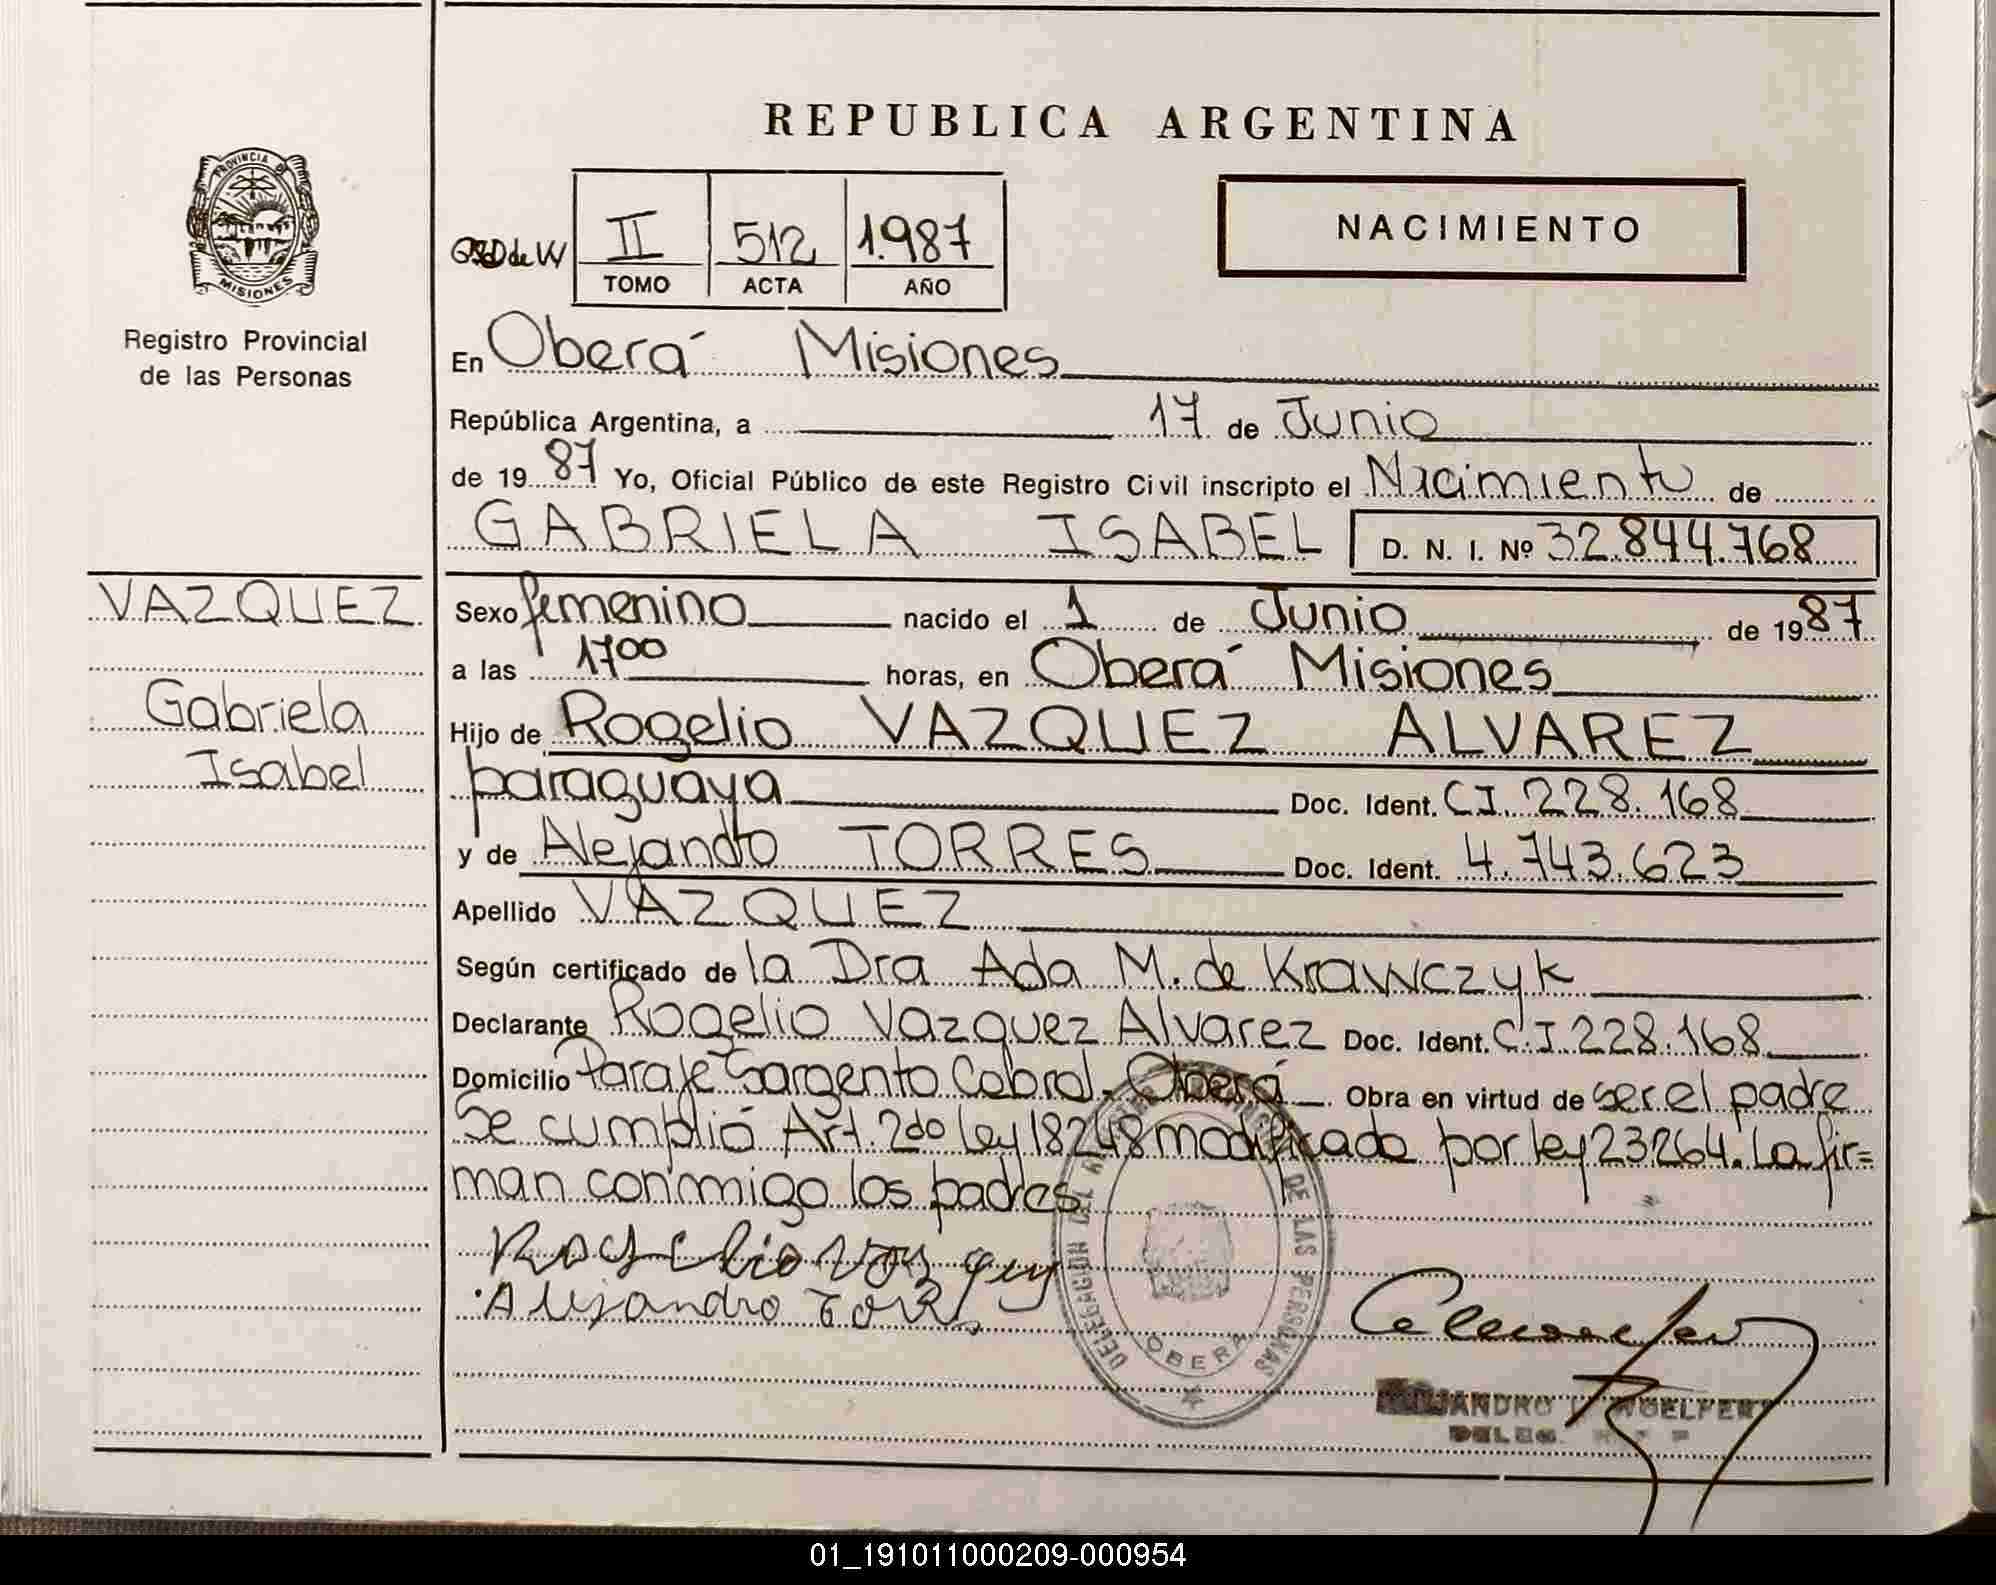 REPUBLICA ARGENTINA
PROVINCIA DE
MISIONES
Registro Provincial
de las Personas
II 512 1.987
TOMO ACTA AÑO
NACIMIENTO
En Oberá Misiones
República Argentina, a 17 de Junio
de 1987 Yo, Oficial Público de este Registro Civil inscripto el Nacimiento de
GABRIELA ISABEL D. N. I. Nº 32.844.768
VAZQUEZ
Gabriela
Isabel
Sexo femenino nacido el 1 de Junio de 1987
a las 1700 horas, en Oberá Misiones
Hijo de Rogelio VAZQUEZ ALVAREZ
paraguaya Doc. Ident. CI. 228.168
y de Alejandro TORRES Doc. Ident. 4.743.623
Apellido VAZQUEZ
Según certificado de la Dra Ada M. de Krawczyk
Declarante Rogelio Vazquez Alvarez Doc. Ident. C.I. 228.168
Domicilio Paraje Sargento Cabral - Oberá Obra en virtud de ser el padre
Se cumplió Art. 2do ley 18248 modificado por ley 23264. La fir=
man conmigo los padres
Rogelio Vazquez
Alejandro Tor
DELEGACION DEL DE LAS PERSONAS
OBERA
WOELFERT
DELEG.
01_191011000209-000954